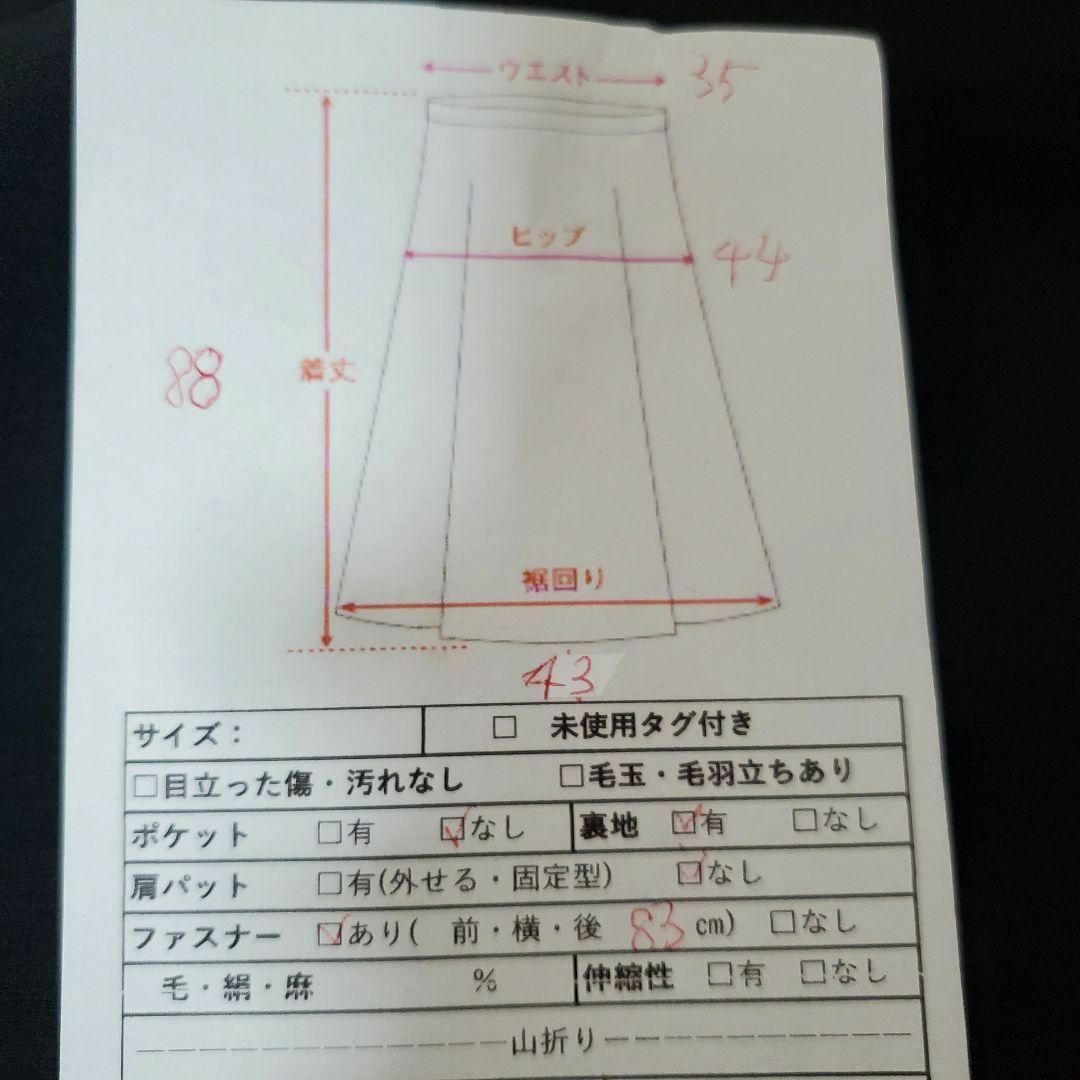 ウエスト 35
ヒップ 44
88 着丈
裾回り
43
サイズ： □ 未使用タグ付き
□目立った傷・汚れなし □毛玉・毛羽立ちあり
ポケット □有 ☑なし 裏地 ☑有 □なし
肩パット □有(外せる・固定型) ☑なし
ファスナー ☑あり( 前・横・後 83 cm) □なし
毛・絹・麻 % 伸縮性 □有 □なし
山折り